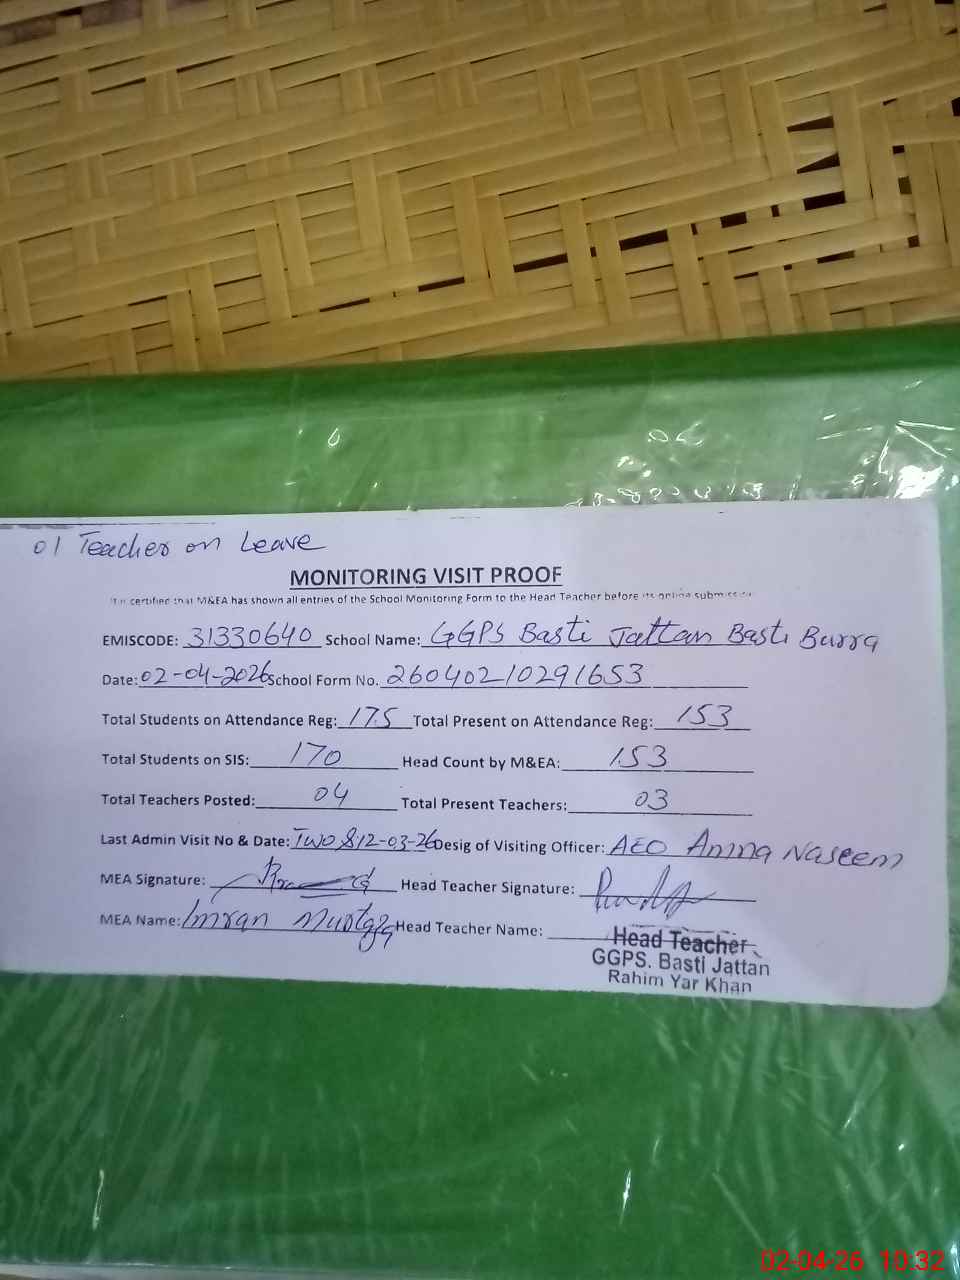 01 Teacher on Leave
MONITORING VISIT PROOF
It is certified that M&EA has shown all entries of the School Monitoring Form to the Head Teacher before its online submission
EMISCODE: 31330640 School Name: GGPS Basti Jattan Basti Burra
Date: 02-04-2026 School Form No. 26040210291653
Total Students on Attendance Reg: 175 Total Present on Attendance Reg: 153
Total Students on SIS: 170 Head Count by M&EA: 153
Total Teachers Posted: 04 Total Present Teachers: 03
Last Admin Visit No & Date: Two & 12-03-26 Desig of Visiting Officer: AEO Amna Naseem
MEA Signature: Head Teacher Signature:
MEA Name: Imran Mustafa Head Teacher Name:
Head Teacher
GGPS. Basti Jattan
Rahim Yar Khan
02-04-26 10:32